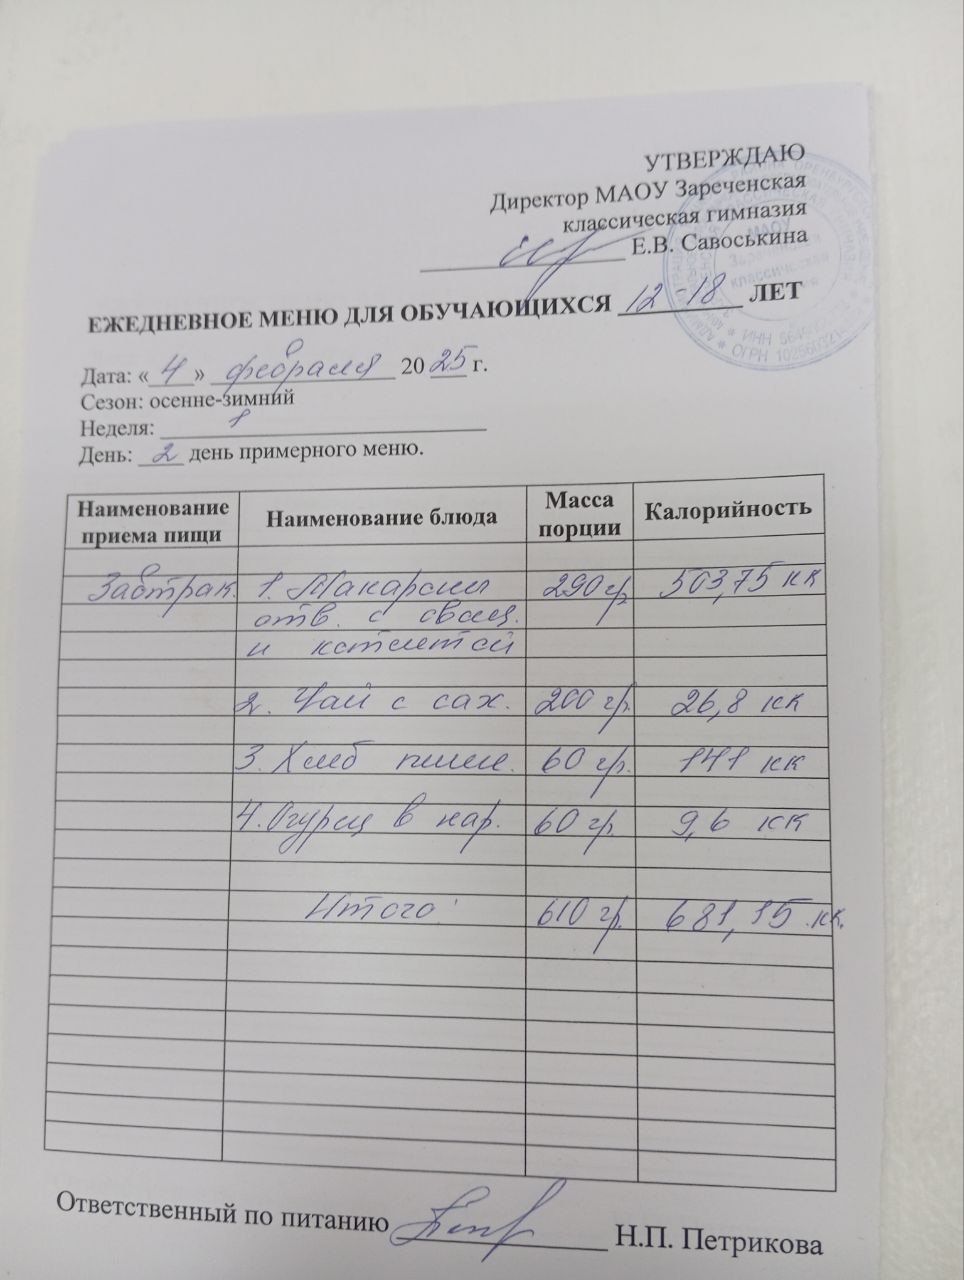 УТВЕРЖДАЮ
Директор МАОУ Зареченская
классическая гимназия
Е.В. Савоськина
ЕЖЕДНЕВНОЕ МЕНЮ ДЛЯ ОБУЧАЮЩИХСЯ 12-18 ЛЕТ
Дата: «4» февраля 2025 г.
Сезон: осенне-зимний
Неделя: 1
День: 2 день примерного меню.
Наименование приема пищи Наименование блюда Масса порции Калорийность
Завтрак 1. Макароны 290 гр. 503,75 кк
отв. с овощ.
и котлетой
2. Чай с сах. 200 гр. 26,8 кк
3. Хлеб пшен. 60 гр. 141 кк
4. Огурец в нар. 60 гр. 9,6 кк
Итого: 610 гр. 681,15 кк.
Ответственный по питанию Н.П. Петрикова
МАОУ
Зареченская
классическая